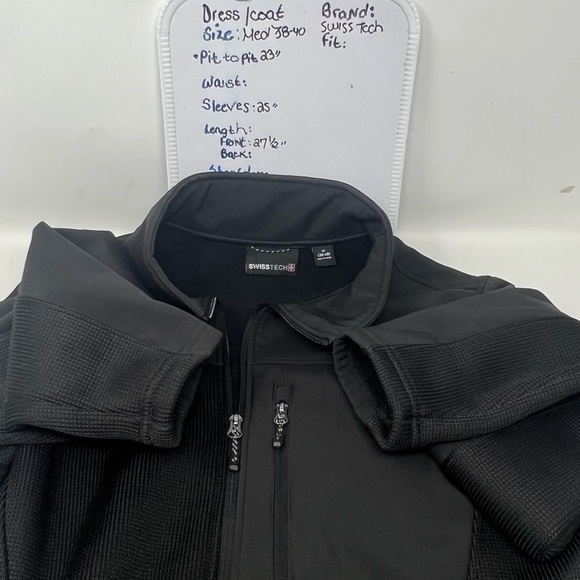 Dress/coat
Brand:
Size: Med 38-40
Swiss Tech
Fit:
•Pit to Pit 23"
Waist:
Sleeves: 25"
Length:
Front: 27 1/2"
Back:
SWISSTECH
M